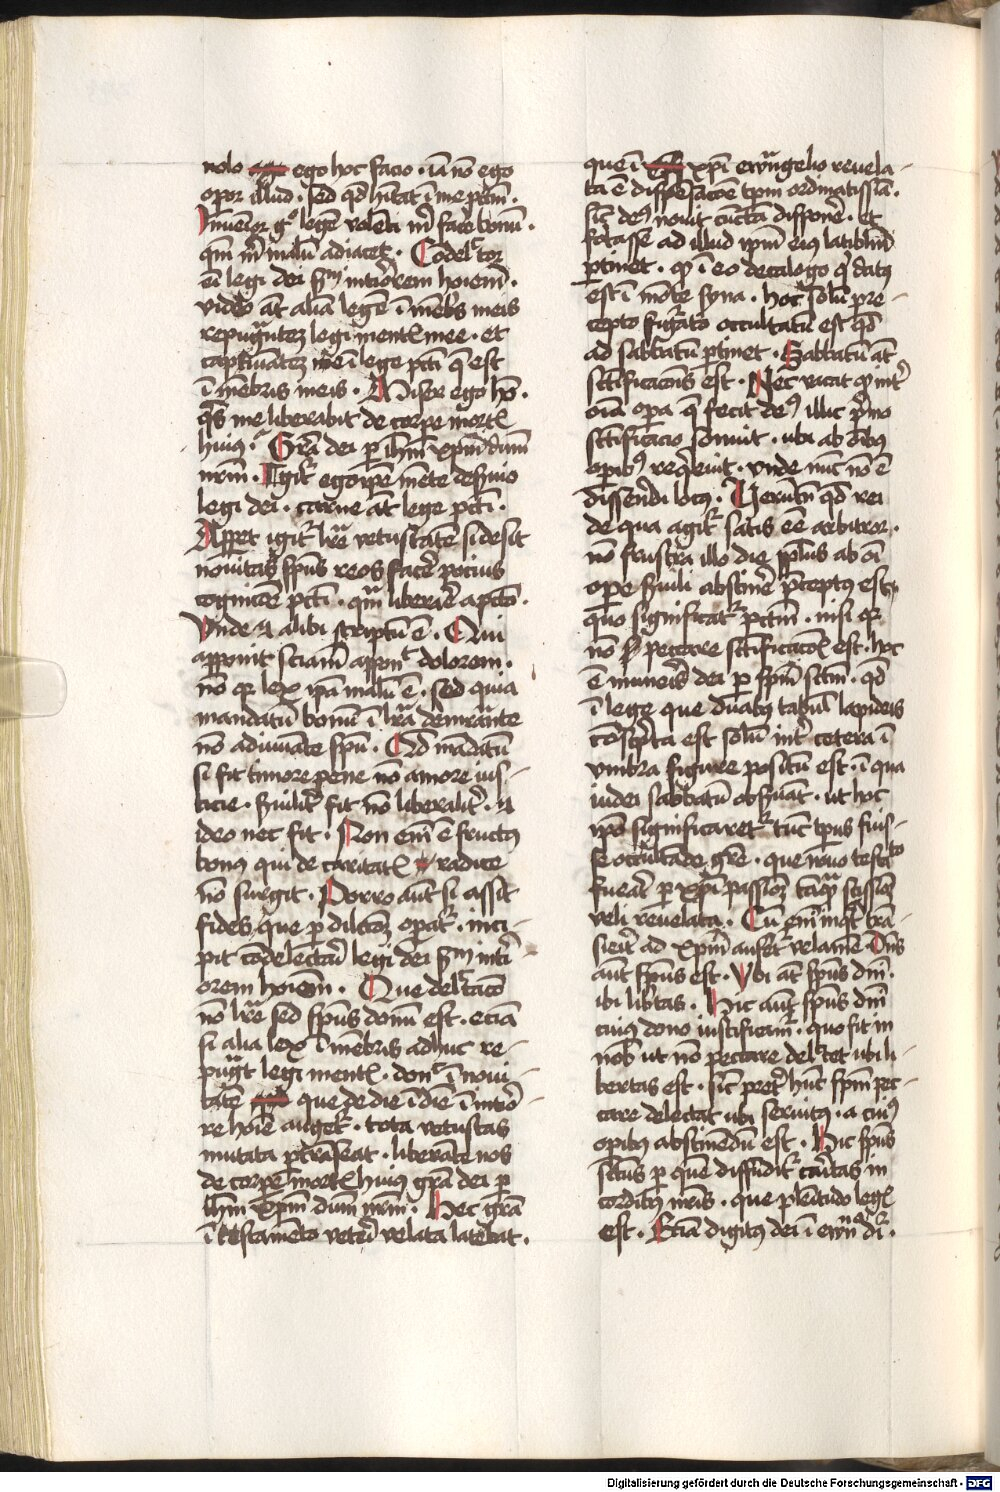 nolo ego hoc facio · iā nō ego
opor illud · sed qd hītat ī me pctm̄ ·
Inuēior gͦ legē volēti m̄ facē bonū ·
qm̄ m̄ malū adiacet · Codelc̄tor
eī legi dei scdm̄ intiorem hoiem̄ ·
video aūt aliā legē ī mēbis meis
repugnātez legi mentis mee · et
captiuātez me ī lege pcti q̄ est
ī mēbris meis · Miser ego hō ·
q̄s me liberabit de corpe mortis
huius · Grā dei p ihm̄ xpm̄ dnm̄
nrm̄ · Igit̄ egoipse mēte deseruio
legi dei · carne aūt lege pcti ·
Apparet igit̄ lrē vetustatē si desit
nouitas spūs reos facē pocius
cognicōe pcti · qm̄ liberare a pctō ·
Vnde et alibi scriptū ē · Qui
apponit sciam̄ apponit dolorem ·
nō qr lex ipā malū ē · sed quia
mandatū bonū ī lrā demrante
nō adiuuāte spū · Qd mādatū
si fit timore pene nō amore ius-
ticie · seruilit̄ fit nō liberalit̄ · et
ideo nec fit · Non em̄ ē fructus
bonus qui de caritatis radice
nō surgit · Porro aūt si assit
fides que p dilcōez opat̄ · inci-
pit cōdelectari legi dei scdm̄ inti-
orem hoiem̄ · Que delctacō
nō lrē sed spūs donū est · eciā
si alia lex ī mēbris adhuc re-
pugt legi mentis · donec ī noui-
tatē que de die ī diē ī intiō-
re hoīe auget̄ · tota vetustas
mutata ptrāseat · liberāte nos
de corpe mortis huius grā dei p
ihm̄ xpm̄ dnm̄ nrm̄ · Hec grā
ī testamēto veteri velata latebat ·
que ī xpi ewāngelio reuela-
ta ē dispēsacōe tpm ordinatissīa ·
sic deus nouit cūcta disponē · et
fortasse ad illud ipm̄ eius latibulū
ptinet · qr ī eo decalogo q̄ datus
est ī mōte syna · hoc solū pre-
cepto figurato occultatū est qd
ad sabbatū ptinet · Sabbatū aūt
sctificacōnis est · Nec vacat qr inter
oīa opa q̄ fecit deus illic p̄mo
sctificacio sonuit · vbi ab oībus
opibus reqeuit · vnde nūc nō ē
dissendi locus · Verūtn̄ qd rei
de qua agit̄ satis eē arbitror ·
nō frustra illo die pplus ab oī
ope seruili abstinē p̄ceptus est ·
quo significat̄ pctm̄ · nisi qr
nō peccare sctificacōis est · hoc
ē muneris dei p spm̄ sctm̄ · qd
ī lege que duabus tabulis lapideis
cōscpta est solū int̄ cetera ī
vmbra figure positū est · ī qua
iudei sabbatū obseruāt · ut hoc
ipō significaret̄ tūc tpus fuis-
se occultāde grē · que nouo testāto
fuerat p xpi passionez tāq̄ scissionē
veli reuelata · Cū em̄ inqt trā-
sierit ad xpm̄ aufert̄ velamē · Dns
aūt spūs est · Vbi aūt spūs dm̄ ·
ibi libertas · Hic aūt spūs dm̄
cuius dono iustificam̄ · quo fit in
nobis ut nō peccare delctet vbi li-
bertas est · sic preter hūc spm̄ pec-
care delectat vbi seruitus · a cuius
opibus abstinēdū est · Hic spūs
sctus p quē diffūdit̄ caritas in
cordibus nris · que plenitudo legis
est · Eciā digitus dei ī ewāng° dr̄ ·
Digitalisierung gefördert durch die Deutsche Forschungsgemeinschaft - DFG